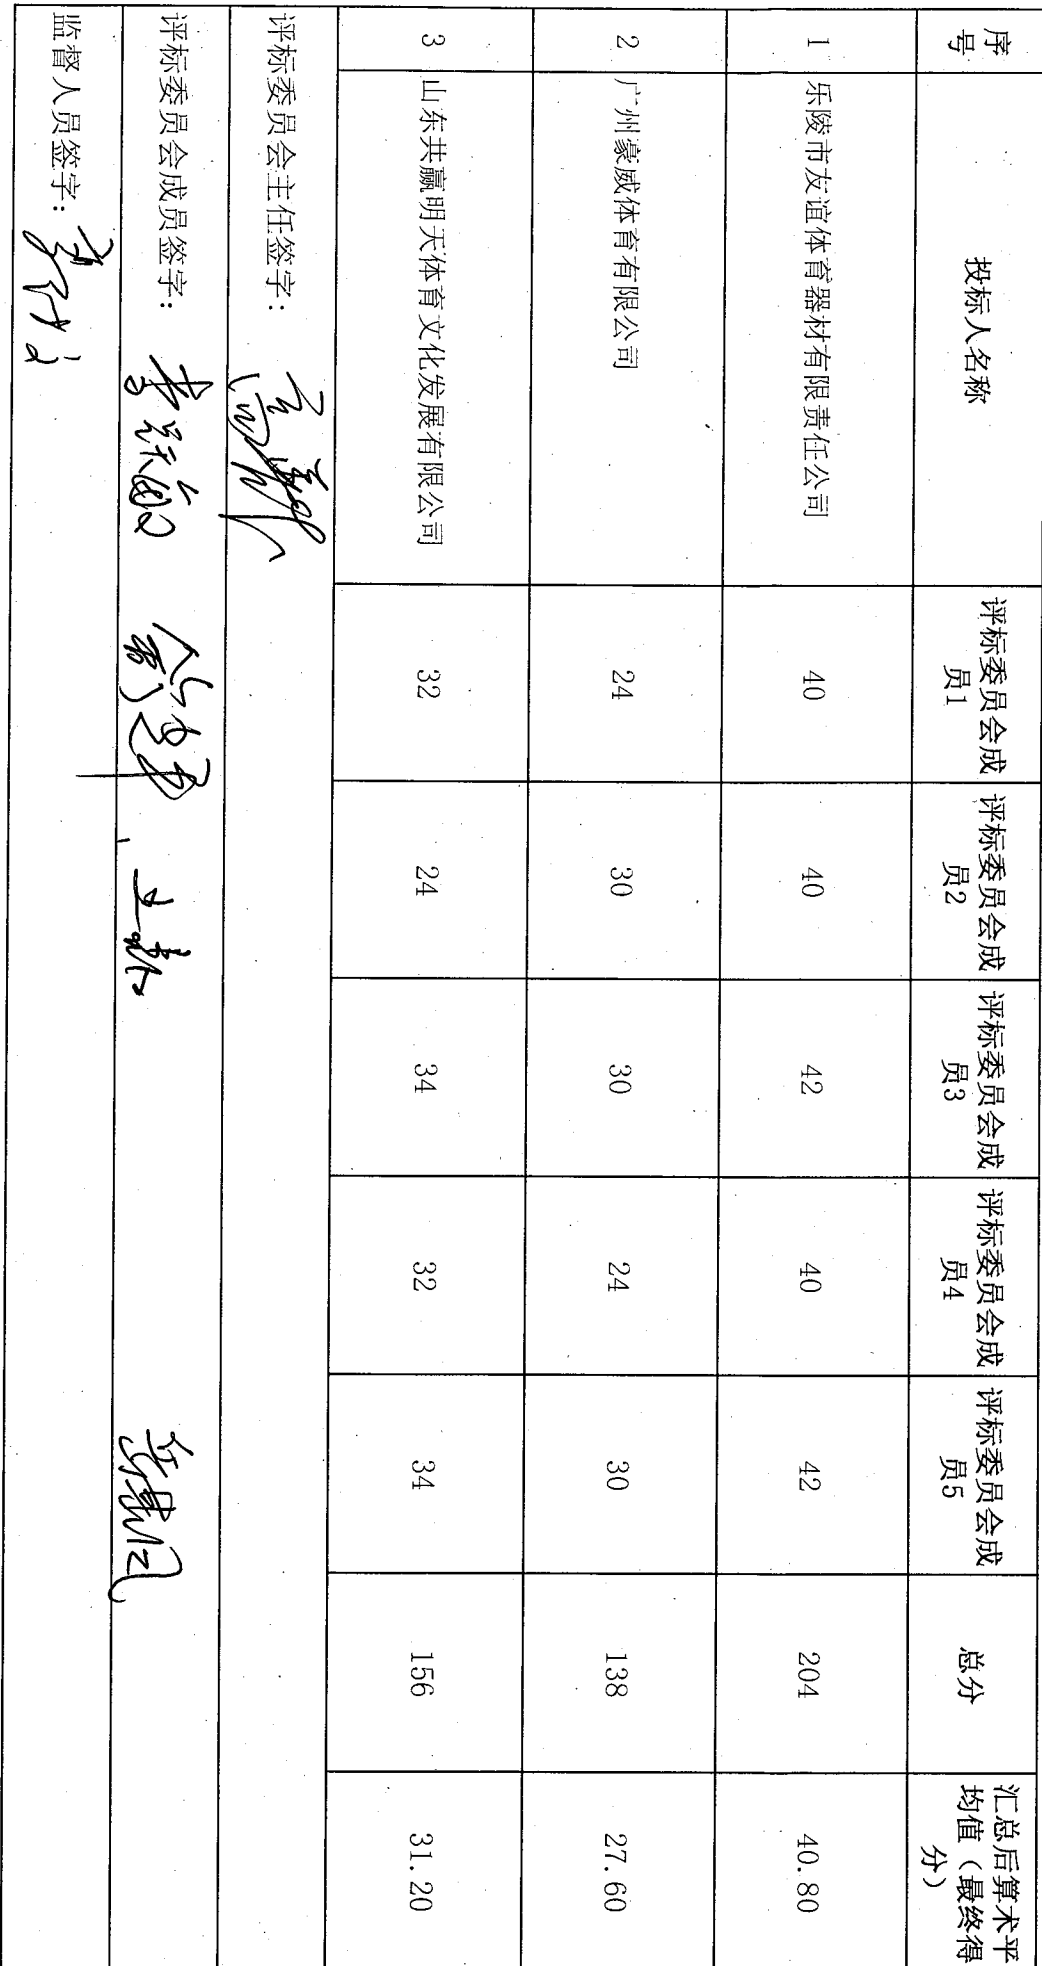 序号 投标人名称 评标委员会成员1 评标委员会成员2 评标委员会成员3 评标委员会成员4 评标委员会成员5 总分 汇总后算术平均值（最终得分）
1 乐陵市友谊体育器材有限责任公司 40 40 42 40 42 204 40.80
2 广州豪威体育有限公司 24 30 30 24 30 138 27.60
3 山东共赢明天体育文化发展有限公司 32 24 34 32 34 156 31.20
评标委员会主任签字：
评标委员会成员签字：
监督人员签字：